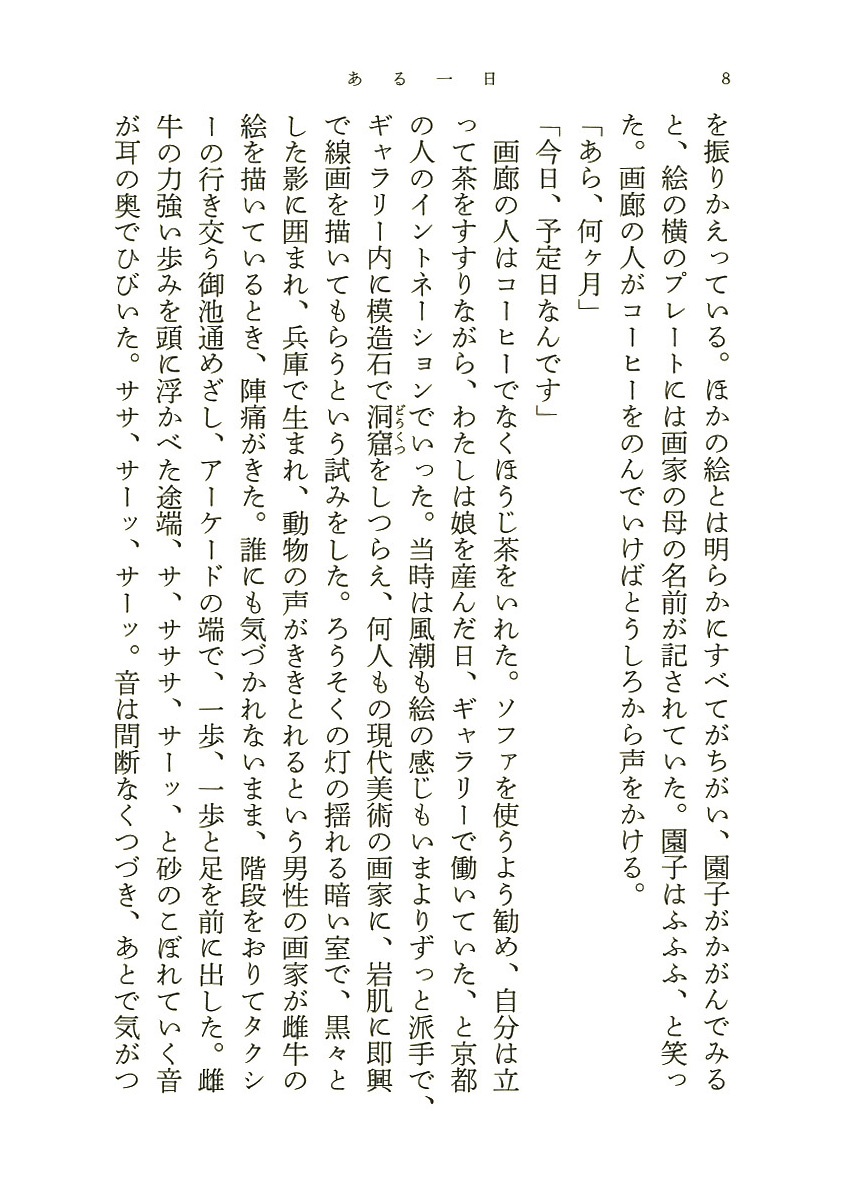 8
ある一日
を振りかえっている。ほかの絵とは明らかにすべてがちがい、園子がかがんでみる
と、絵の横のプレートには画家の母の名前が記されていた。園子はふふふ、と笑っ
た。画廊の人がコーヒーをのんでいけばとうしろから声をかける。
「あら、何ヶ月」
「今日、予定日なんです」
　画廊の人はコーヒーでなくほうじ茶をいれた。ソファを使うよう勧め、自分は立
って茶をすすりながら、わたしは娘を産んだ日、ギャラリーで働いていた、と京都
の人のイントネーションでいった。当時は風潮も絵の感じもいまよりずっと派手で、
ギャラリー内に模造石で洞窟どうくつをしつらえ、何人もの現代美術の画家に、岩肌に即興
で線画を描いてもらうという試みをした。ろうそくの灯の揺れる暗い室で、黒々と
した影に囲まれ、兵庫で生まれ、動物の声がききとれるという男性の画家が雌牛の
絵を描いているとき、陣痛がきた。誰にも気づかれないまま、階段をおりてタクシ
ーの行き交う御池通めざし、アーケードの端で、一歩、一歩と足を前に出した。雌
牛の力強い歩みを頭に浮かべた途端、サ、ササササ、サーッ、と砂のこぼれていく音
が耳の奥でひびいた。ササ、サーッ、サーッ。音は間断なくつづき、あとで気がつ